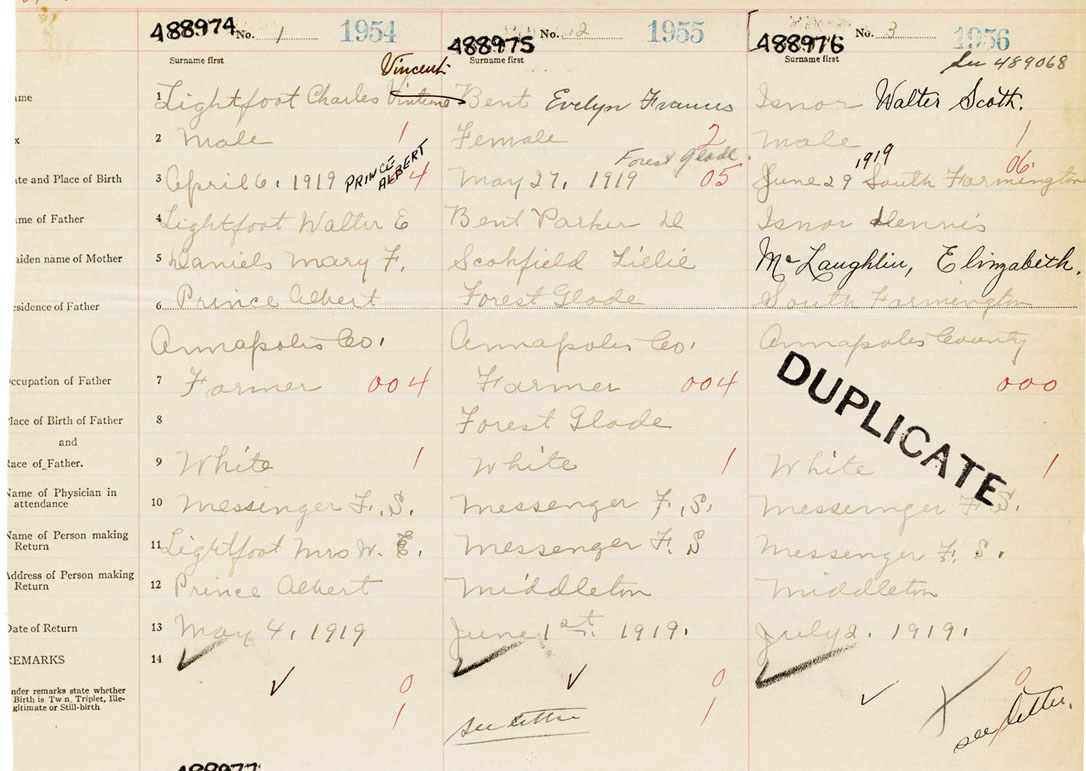 488974 No. 1 1954 488975 No. 2 1955 488976 No. 3 1956
Surname first Surname first Surname first
Vincent See 489068
ame 1 Lightfoot Charles Bent Evelyn Francis Isnor Walter Scoth.
x 2 Male 1 Female 2 male 1
Forest Glade. 1919 06
ate and Place of Birth 3 April 6, 1919 PRINCE ALBERT 4 May 27, 1919 05 June 29 South Farmington
ame of Father 4 Lightfoot Walter E Bent Parker D Isnor Dennis
aiden name of Mother 5 Daniels Mary F. Scohfield Lielie McLaughlin, Elinzabeth.
esidence of Father 6 Prince Albert Forest Glade South Farmington
Annapolis Co. Annapolis Co. Annapolis County
ccupation of Father 7 Farmer 004 Farmer 004 000
DUPLICATE
lace of Birth of Father 8 Forest Glade
and
Race of Father. 9 White 1 White 1 White 1
Name of Physician in
attendance 10 Messinger F., S. Messenger F., S. Messernger F. S.
Name of Person making
Return 11 Lightfoot Mrs W. E. Messenger F. S Messenger F. S.
Address of Person making
Return 12 Prince Albert Middleton Middleton
Date of Return 13 May 4, 1919 June 1st. 1919. July 2. 1919.
REMARKS 14
nder remarks state whether 0 0 0
Birth is Twin, Triplet, Ille-
gitimate or Still-birth. 1 see letter 1 see letter.
488977